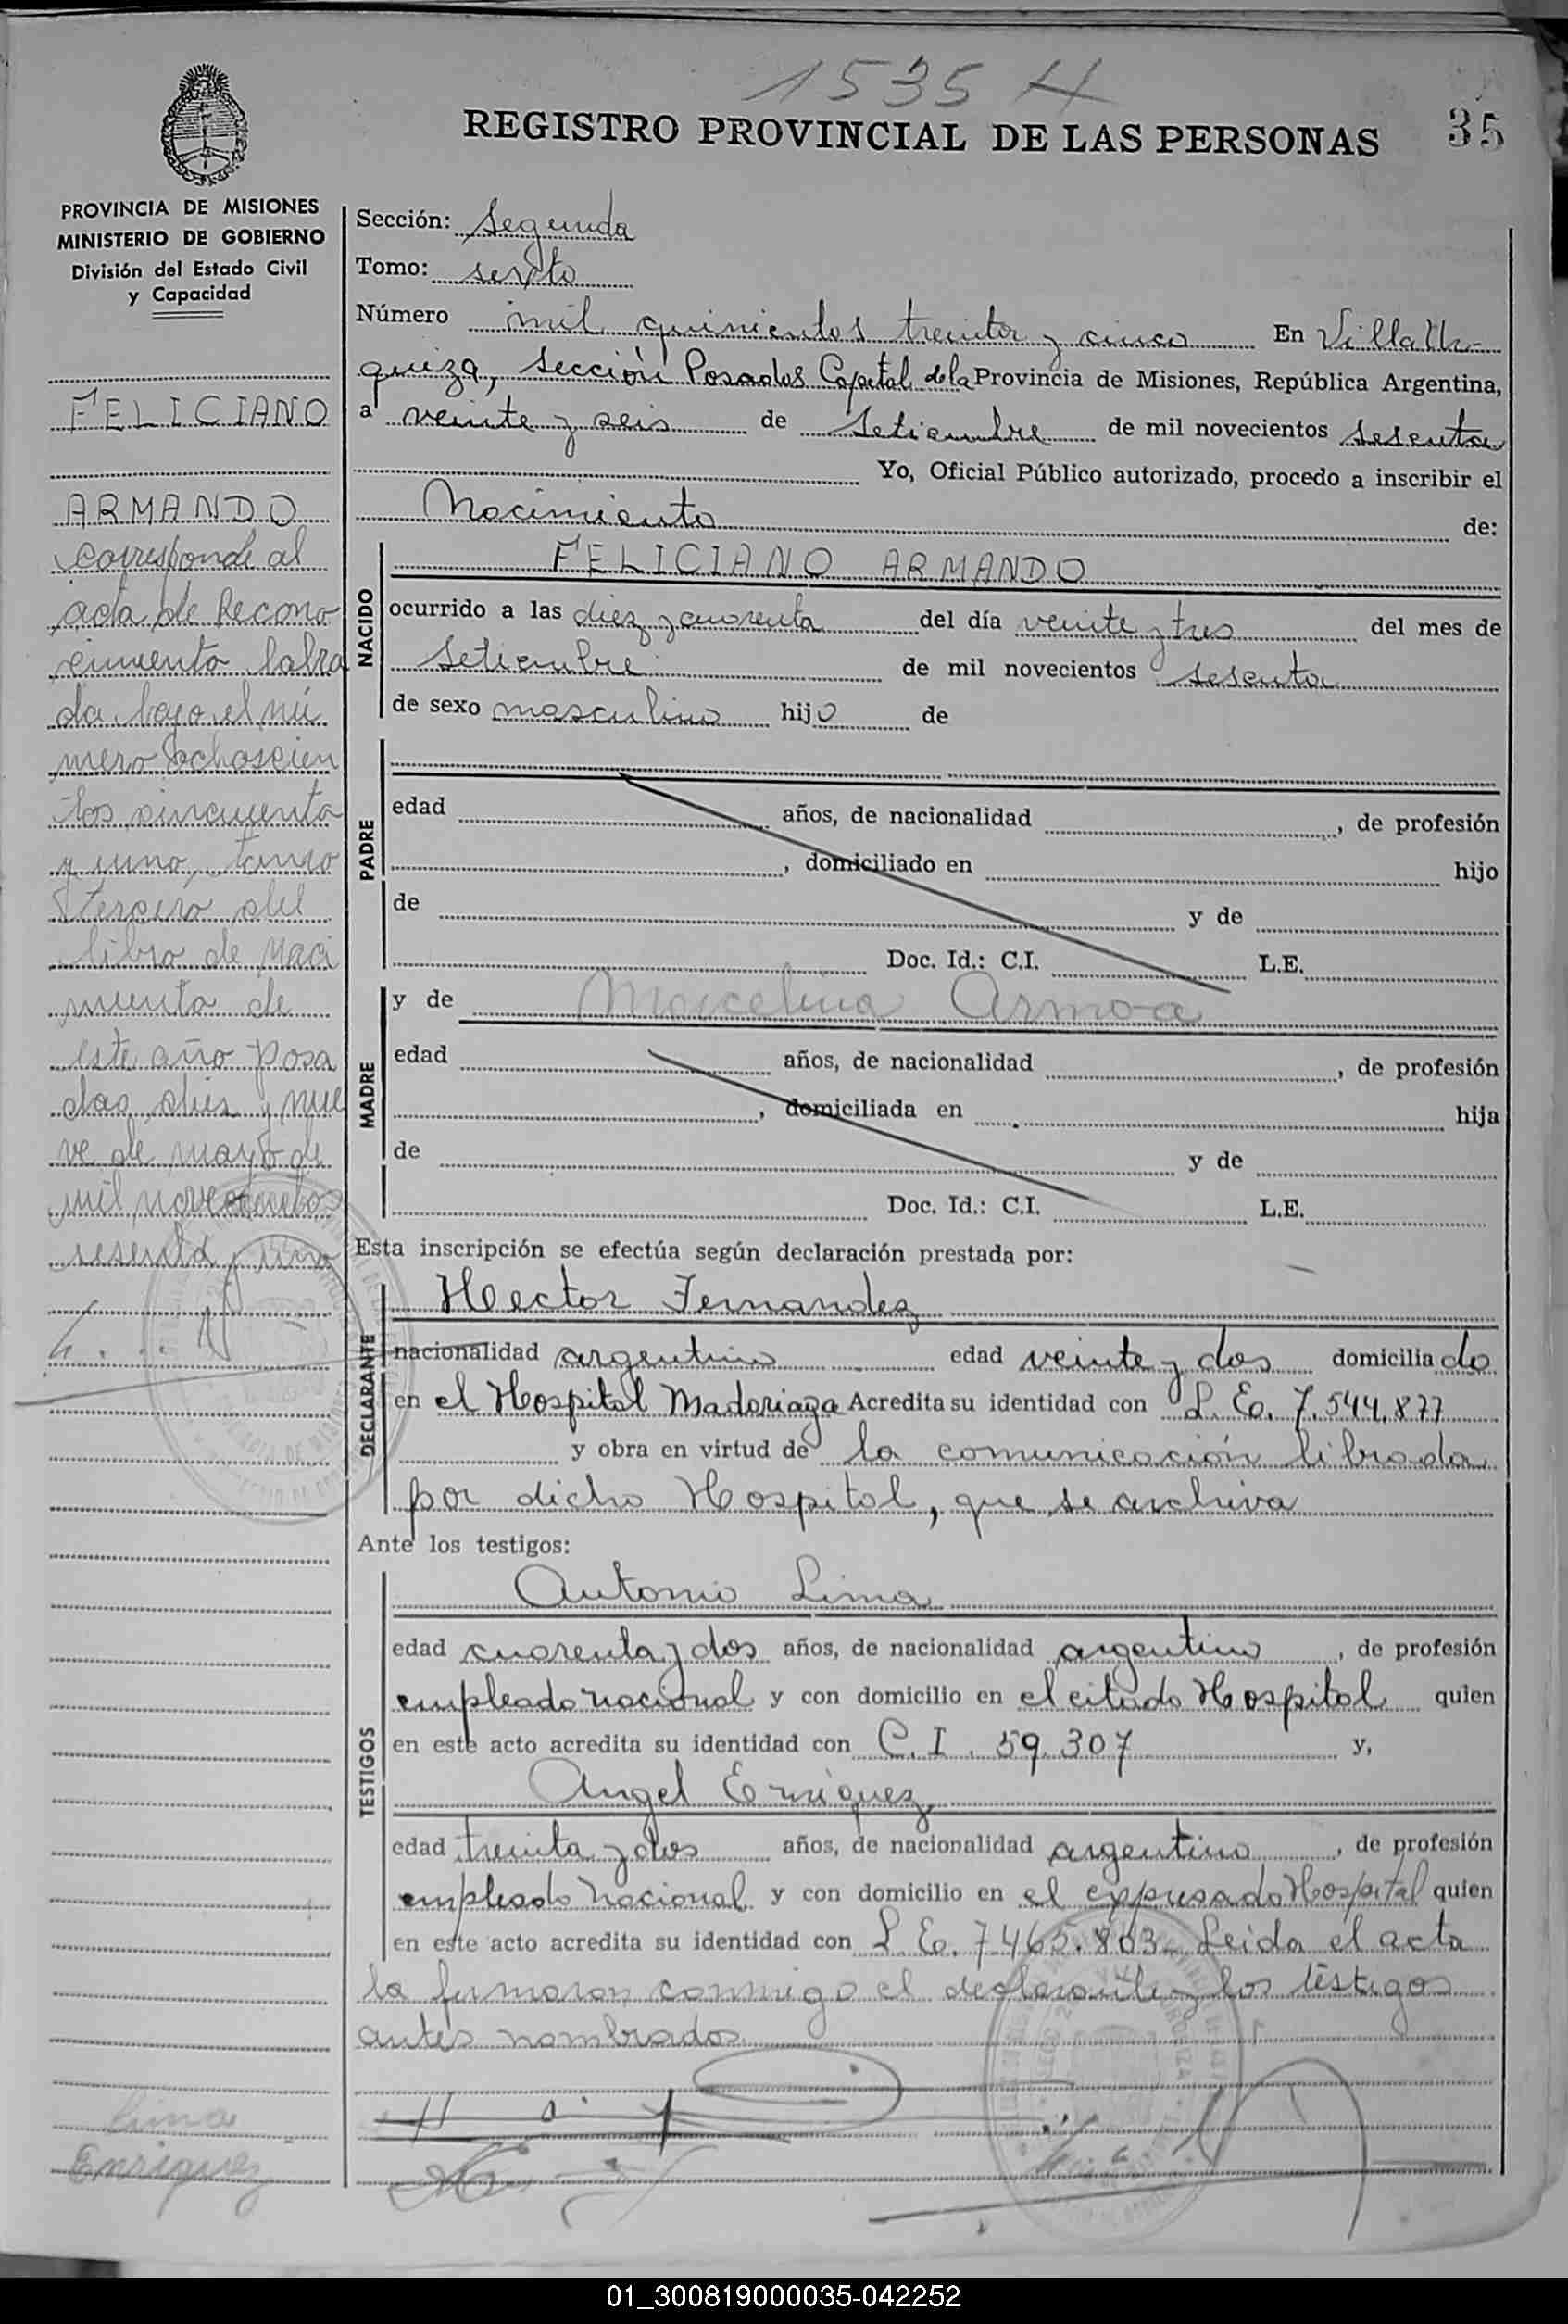 1535 H
REGISTRO PROVINCIAL DE LAS PERSONAS
35
PROVINCIA DE MISIONES
MINISTERIO DE GOBIERNO
División del Estado Civil
y Capacidad
FELICIANO
ARMANDO
corresponde al
acta de Recono
cimiento labra
da bajo el nú
mero ochoscien
tos cincuenta
y uno, tomo
tercero del
libro de naci
miento de
este año Posa
das, diez y nue
ve de mayo de
mil novecientos
sesenta y uno
Sección: Segunda
Tomo: sexto
Número mil quinientos treinta y cinco En Villa Ur-
quiza, Sección Posadas Capital de la Provincia de Misiones, República Argentina,
a veinte y seis de Setiembre de mil novecientos sesenta
Yo, Oficial Público autorizado, procedo a inscribir el
Nacimiento de:
NACIDO
FELICIANO ARMANDO
ocurrido a las diez y cuarenta del día veinte y tres del mes de
Setiembre de mil novecientos sesenta
de sexo masculino hijo de
PADRE
edad años, de nacionalidad , de profesión
, domiciliado en hijo
de y de
Doc. Id.: C.I. L.E.
MADRE
y de Marcelina Armoa
edad años, de nacionalidad , de profesión
, domiciliada en hija
de y de
Doc. Id.: C.I. L.E.
Esta inscripción se efectúa según declaración prestada por:
DECLARANTE
Hector Fernandez
nacionalidad argentino edad veinte y dos domiciliado
en el Hospital Madariaga Acredita su identidad con L. E. 7.544.877
y obra en virtud de la comunicación librada
por dicho Hospital, que se archiva
Ante los testigos:
TESTIGOS
Antonio Lima
edad cuarenta y dos años, de nacionalidad argentino, de profesión
empleado nacional y con domicilio en el citado Hospital quien
en este acto acredita su identidad con C. I. 59.307 y,
Angel Enriquez
edad treinta y dos años, de nacionalidad argentino, de profesión
empleado nacional y con domicilio en el expresado Hospital quien
en este acto acredita su identidad con L. E. 7.465.803 Leida el acta
la firmaron conmigo el declarante y los testigos
antes nombrados
Lima
Enriquez
01_300819000035-042252